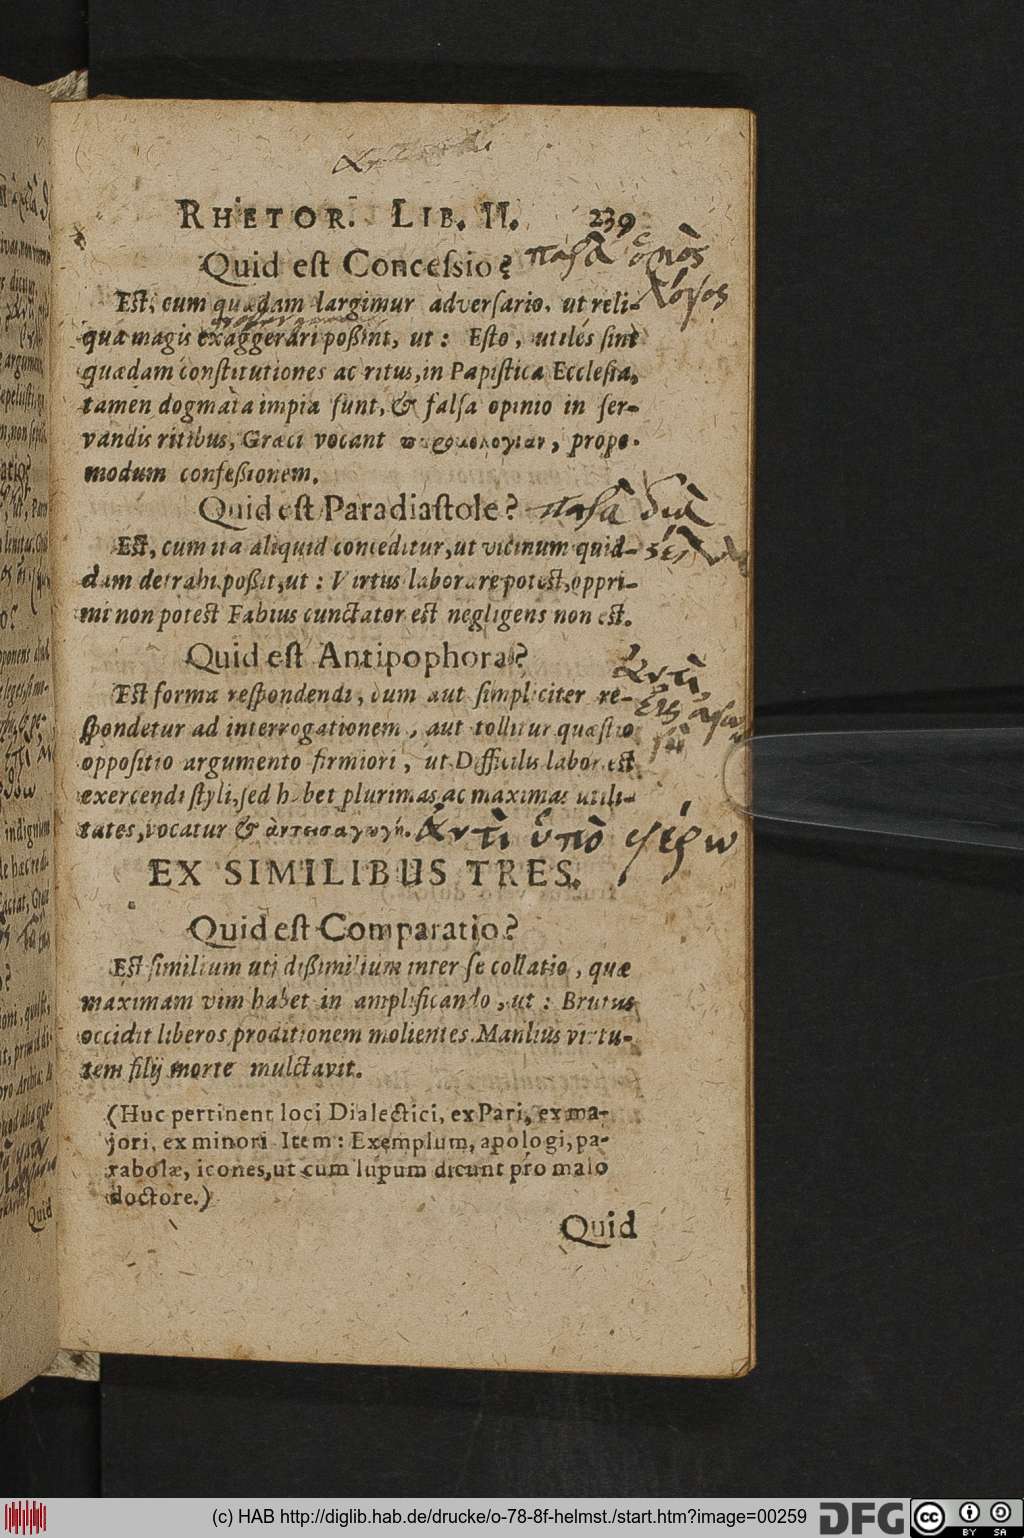 RHETOR. LIB. II. 239
Quid eſt Conceſsio?
παρὰ ὁμὸς
λόγος
Est, cum quædam largimur adverſario, ut reli-
qua magis exaggerari poßint, ut: Eſto, utiles ſint
quædam conſtitutiones ac ritus, in Papiſtica Eccleſia,
tamen dogmata impia ſunt, & falſa opinio in ſer-
vandis ritibus, Græci vocant παρομολογίαν, prope-
modum confeßionem.
Quid eſt Paradiaſtole? παρὰ διὰ
Est, cum ita aliquid conceditur, ut vicinum quid-
dam detrahi poßit, ut: Virtus laborare potest, oppri-
mi non potest Fabius cunctator est negligens non est.
Quid eſt Antipophora?
ἀντὶ
Est forma reſpondendi, cum aut ſimpliciter re-
ſpondetur ad interrogationem, aut tollitur quæſtio
oppoſitio argumento firmiori, ut Difficilis labor est
exercendi ſtyli, ſed habet plurimas ac maximas utili-
tates, vocatur & ἀντεισαγωγή. ἀντὶ ὑπὸ φέρω
EX SIMILIBUS TRES.
Quid eſt Comparatio?
Est ſimilium uti dißimilium inter ſe collatio, quæ
maximam vim habet in amplificando, ut: Brutus
occidit liberos proditionem molientes. Manlius virtu-
tem filij morte mulctavit.
(Huc pertinent loci Dialectici, ex Pari, ex ma-
jori, ex minori Item: Exemplum, apologi, pa-
rabolæ, icones, ut cum lupum dicunt pro malo
doctore.)
Quid
Quid
(c) HAB http://diglib.hab.de/drucke/o-78-8f-helmst./start.htm?image=00259
DFG
CC BY SA